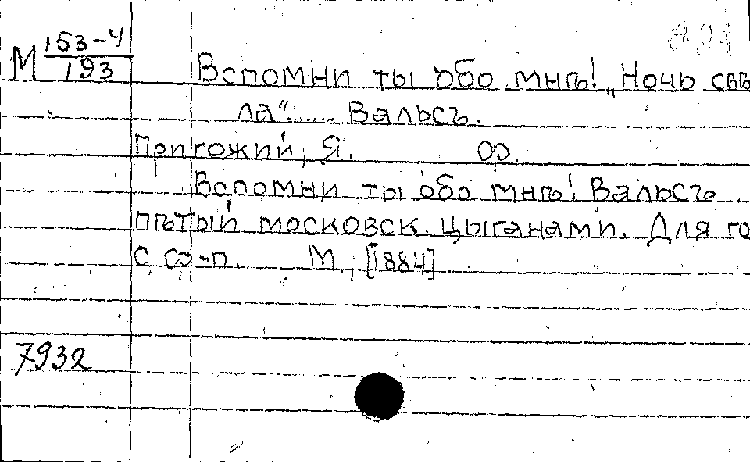 М 153-4/193
Вспомни ты обо мнѣ! „Ночь свѣ
ла“..... Вальсъ.
Пригожий, Я.
Вспомни ты обо мнѣ! Вальсъ,
пѣтый московск. цыганами. Для го
с со-п. М., [1884]
7932